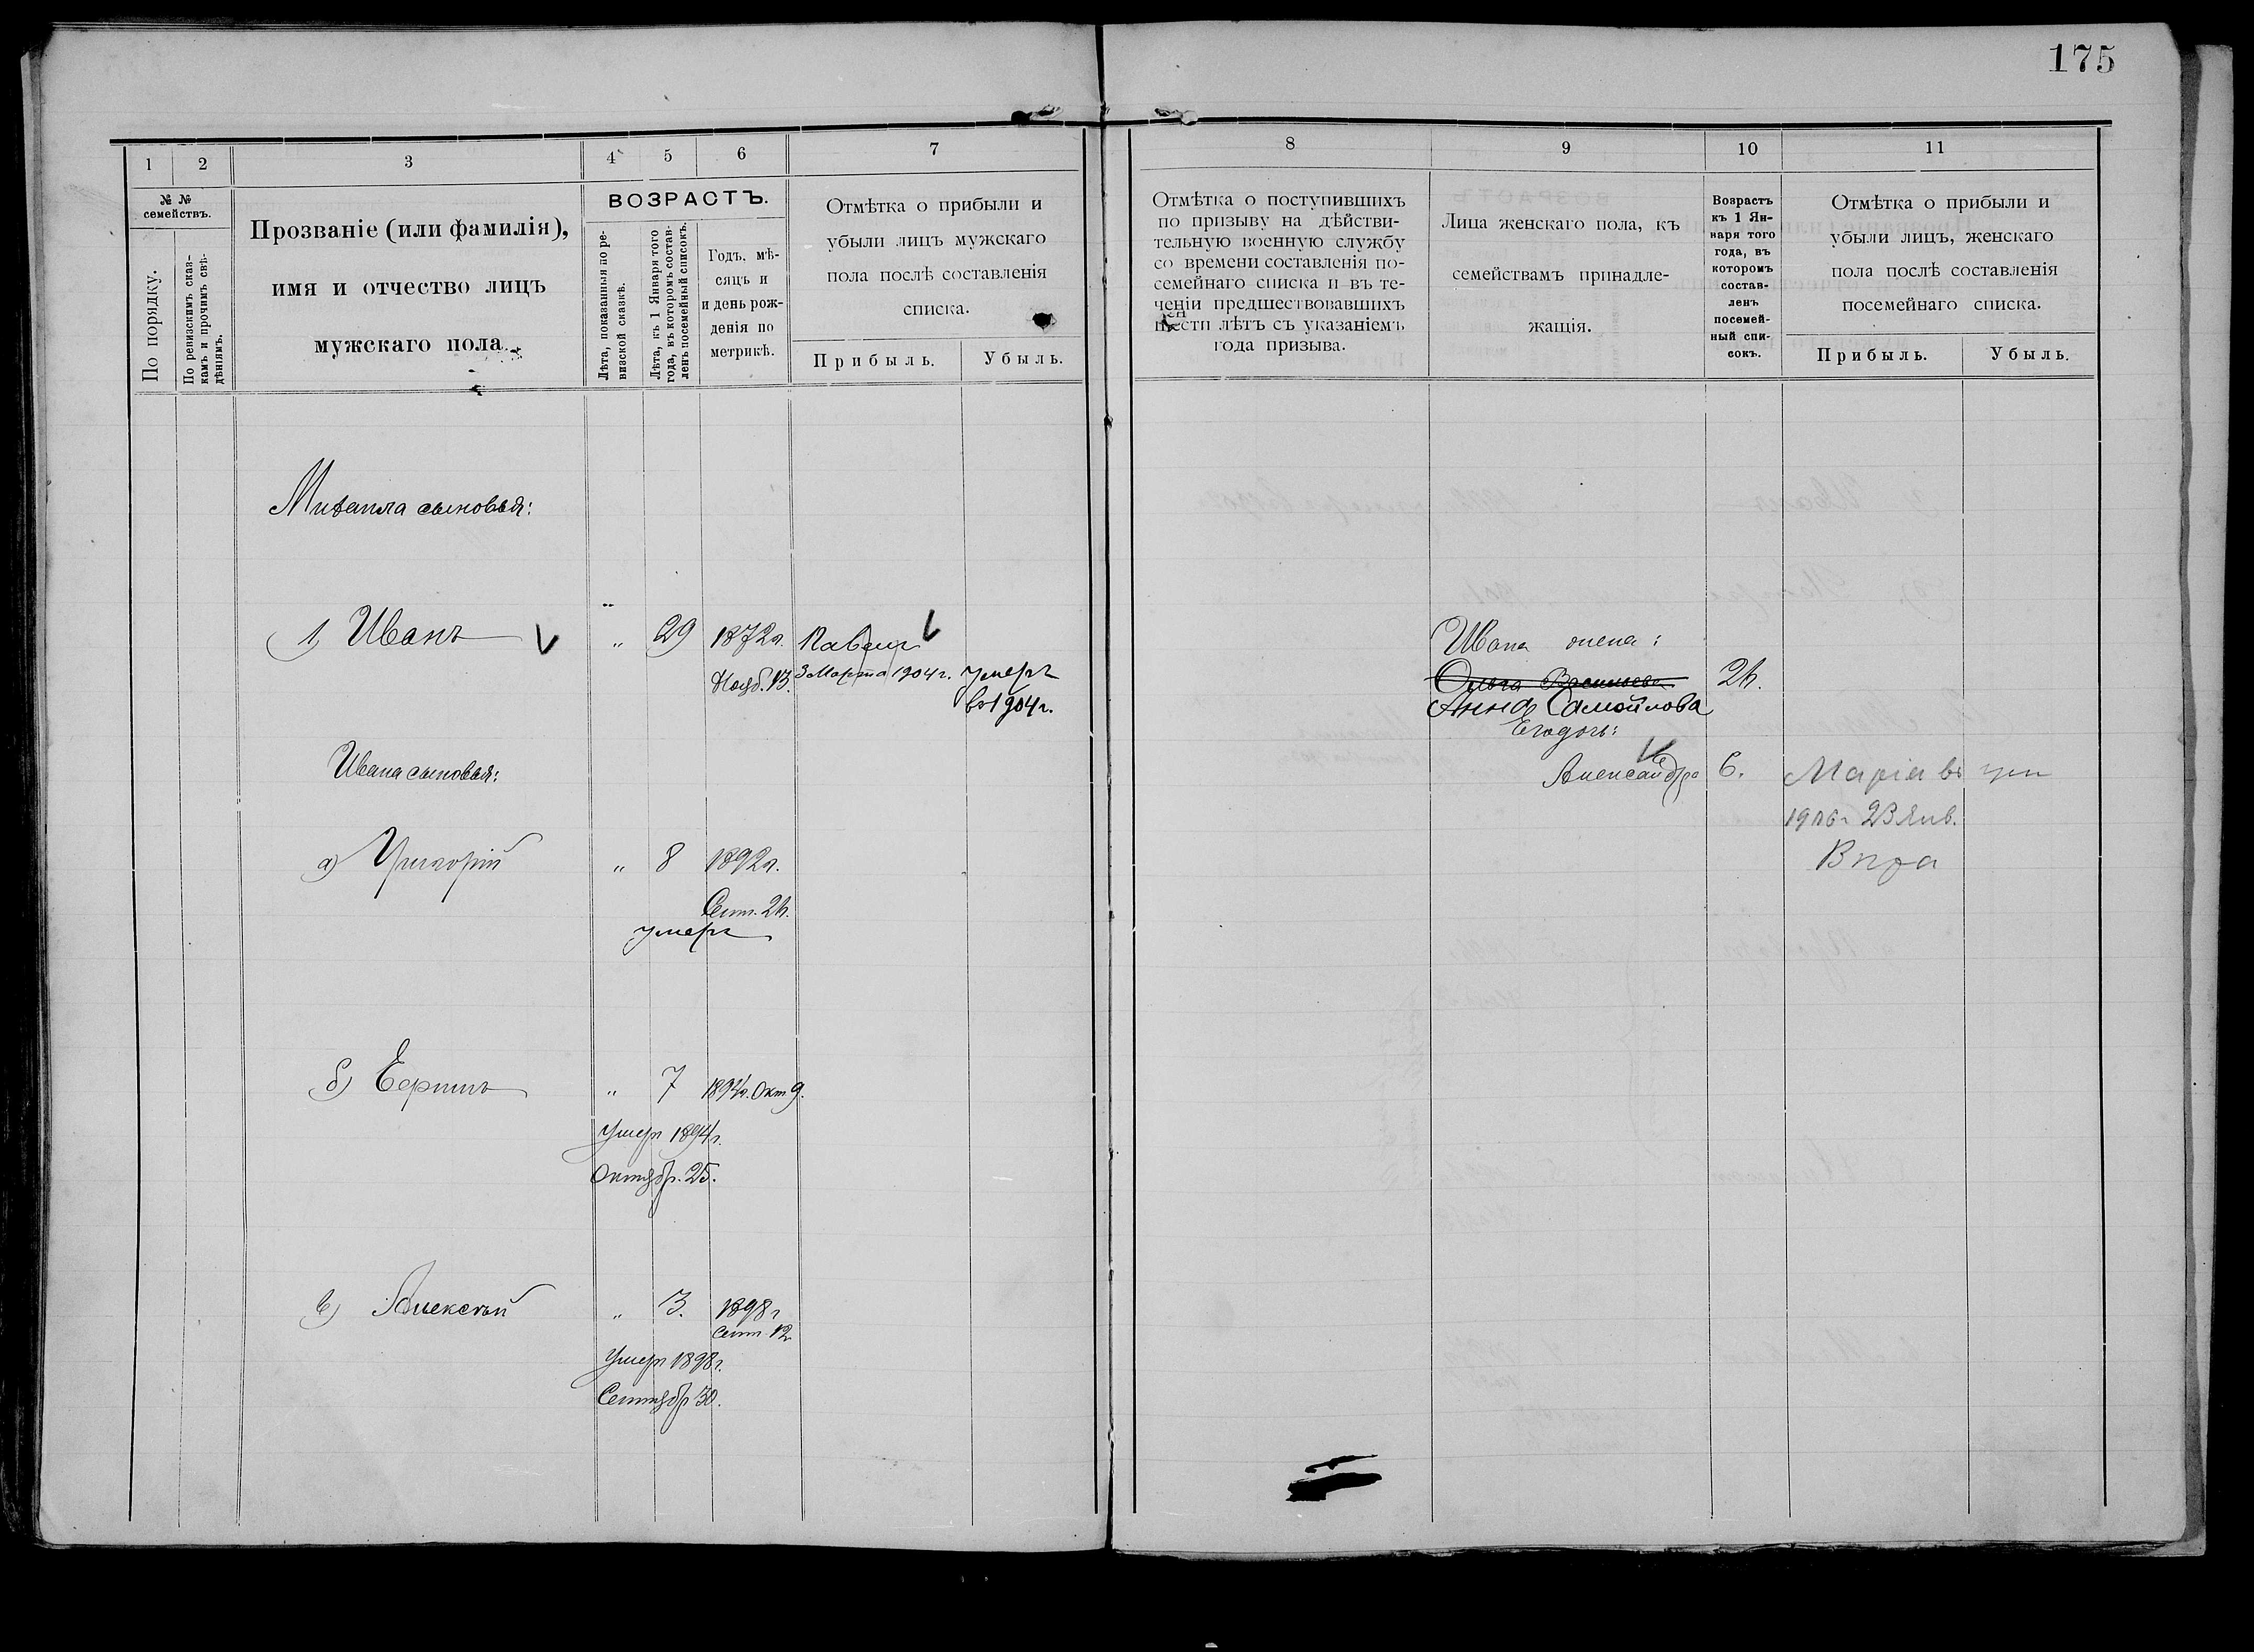 175
1
2
3
4
5
6
7
8
9
10
11
№ №
семействъ.
По порядку.
По ревизскимъ сказ-
камъ и прочимъ свѣ-
дѣніямъ.
Прозваніе (или фамилія),
имя и отчество лицъ
мужскаго пола
ВОЗРАСТЪ.
Лѣта, показанныя по ре-
визской сказкѣ.
Лѣта, къ 1 Января того
года, въ которомъ состав-
ленъ посемейный списокъ.
Годъ, мѣ-
сяцъ и
и день рож-
денія по
метрикѣ.
Отмѣтка о прибыли и
убыли лицъ мужскаго
пола послѣ составленія
списка.
Прибыль.
Убыль.
Отмѣтка о поступившихъ
по призыву на дѣйстви-
тельную военную службу
со времени составленія по-
семейнаго списка и въ те-
ченіи предшествовавшихъ
шести лѣтъ съ указаніемъ
года призыва.
Лица женскаго пола, къ
семействамъ принадле-
жащія.
Возрастъ
къ 1 Ян-
варя того
года, въ
которомъ
состав-
ленъ
посемей-
ный спи-
сокъ.
Отмѣтка о прибыли и
убыли лицъ, женскаго
пола послѣ составленія
посемейнаго списка.
Прибыль.
Убыль.
Михаила сыновья:
1) Иванъ „ 29 1872г. Павелъ
Нояб. 13. 3 Марта 1904 г. умеръ
въ 1904 г.
Ивана жена:
Ольга Васильева 26.
Анна Самойлова
Его дочь:
Александра 6. Марія въ ум
1906 г 23 Янв.
Вѣра
Ивана сыновья:
а) Григорій „ 8 1892г.
Сент. 26.
умеръ
б) Ефимъ „ 7 1894г. Окт 9.
Умеръ 1894 г.
Октябр. 25.
в) Алексѣй „ 3. 1898 г
сент. 12
Умеръ 1898 г.
Сентябр 30.